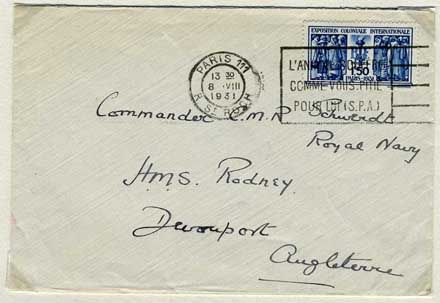 EXPOSITION COLONIALE INTERNATIONALE
1F50
PARIS-1931
PARIS 111
13 30
8 · VIII
1931
R. ST ROCH
L'ANIMAL SOUFFRE
COMME VOUS. PITIÉ
POUR LUI (S.P.A.)
Commander C.M.R. Schwerdt
Royal Navy
H.M.S. Rodney.
Devonport
Angleterre